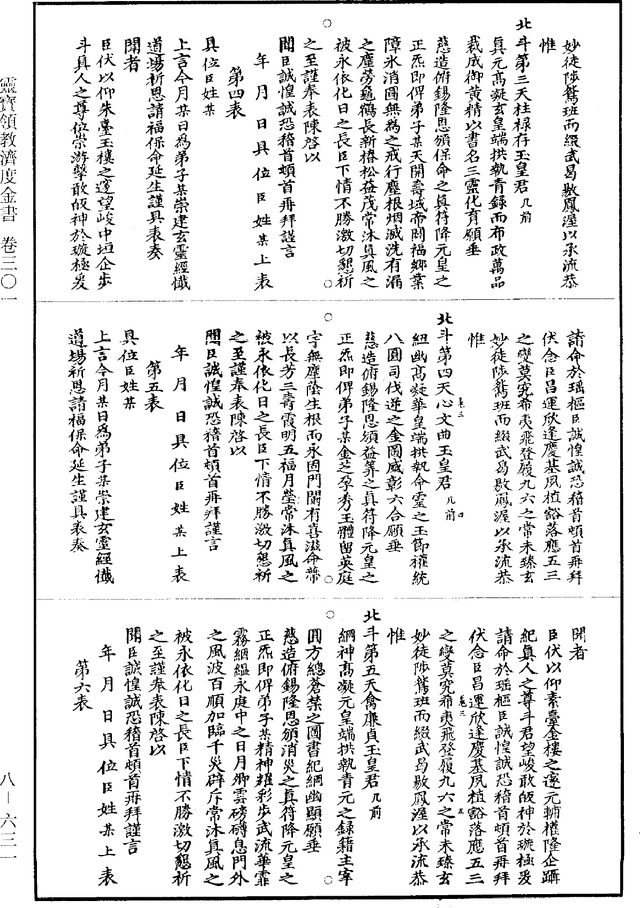 妙徒陟鴛班而綴武曷敭鳳渥以承流恭
惟
北斗第三天柱祿存玉皇君几前
真元高凝玄皇端拱執青錄而布政萬品
裁成御黃精以書名三靈化育願垂
慈造俯錫隆恩頒保命之真符降元皇之
正炁即俾弟子某天開壽域帝闢福鄉業
障氷消圓無為之戒行塵根烟滅洗有漏
之塵勞龜鶴長新椿松益茂常沐真風之
被永依化日之長臣下情不勝激切懇祈
之至謹奉表陳啓以
聞臣誠惶誠恐稽首頓首再拜謹言
年月日具位臣姓某上表
第四表
具位臣姓某
上言今月某日為弟子某崇建玄靈經懺
道場祈恩請福保命延生謹具表奏
聞者
臣伏以仰朱臺玉樓之邃望峻中垣企步
斗真人之尊位崇游擊敢皈神於璇極爰
請命於瑤樞臣誠惶誠恐稽首頓首再拜
伏念臣昌運欣逢慶基夙植豁落應五三
之變莫究希夷飛登履九六之常未臻玄
妙徒陟鴛班而綴武曷敭鳳渥以承流恭
惟
北斗第四天心文曲玉皇君几前
紐幽高凝華皇端拱執命靈之玉節權統
八圓司伐逆之金圖威彰六合願垂
慈造俯錫隆恩頒益筭之真符降元皇之
正炁即俾弟子某金芝孕秀玉體留英庭
宇無塵蔭生根而永固門闌有喜滋命蔕
以長芳三壽霞明五福月瑩常沐真風之
被永依化日之長臣下情不勝激切懇祈
之至謹奉表陳啓以
聞臣誠惶誠恐稽首頓首再拜謹言
年月日具位臣姓某上表
第五表
具位臣姓某
上言今月某日為弟子某崇建玄靈經懺
道場祈恩請福保命延生謹具表奏
聞者
臣伏以仰素臺金樓之邃元輔權隆企躡
紀真人之尊斗君望峻敢皈神於璇極爰
請命於瑤樞臣誠惶誠恐稽首頓首再拜
伏念臣昌運欣逢慶基夙植豁落應五三
之變莫究希夷飛登履九六之常未臻玄
妙徒陟鴛班而綴武曷敭鳳渥以承流恭
惟
北斗第五天禽廉貞玉皇君几前
綱神高凝元皇端拱執青元之錄籍主宰
圓方總蒼禁之圖書紀綱幽顯願垂
慈造俯錫隆恩頒消災之真符降元皇之
正炁即俾弟子某精神耀彩步武流華霏
霧絪縕永庭中之日月卿雲磅礡息門外
之風波百順加臨千災辟斥常沐真風之
被永依化日之長臣下情不勝激切懇祈
之至謹奉表陳啓以
聞臣誠惶誠恐稽首頓首再拜謹言
年月日具位臣姓某上表
第六表
靈寶領教濟度金書 卷三〇一
八－六三一